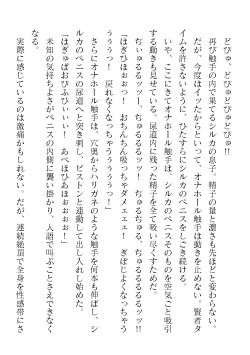 どびゅ、どびゅどびゅどびゅ!!
再び触手の内で果てるシルカの息子。精子の量と濃さも先ほどと変わらない。
だが、今度はイッたからといって、オナホール触手は動きを止めない。賢者タ
イムを許さないように、ひたすらにシルカのペニスをしごき続ける。
いや、ここにきてオナホール触手は、シルカのペニスそのものを空気ごと吸引
する動きも見せている。尿道内に残った精子を全て吸い尽くすためだ。
ちゅぅるるるッッー、ちゅるるるるるッ、ちゅるるるるるるッッ!!
「はぎひほぉおっっ! おちんちん吸っちゃダメェェェ! ぎぼじよくなっちゃう
ぅぅぅっ! 戻れなくなっちゃうううううっ!」
さらにオナホール触手は、穴奥からハリガネのような触手を何本も伸ばし、シ
ルカのペニスの尿道へと突き刺し、ピストンと連動して出し入れし始めた。
「はぎゅばおびふひぃぃー! あへほひあほぉぉぉー!」
未知の気持ちよさがペニスの内側に襲い掛かり、人語で叫ぶことさえできなく
なる。
実際に感じているのは激痛かもしれない。だが、連続絶頂で全身を性感帯にさ